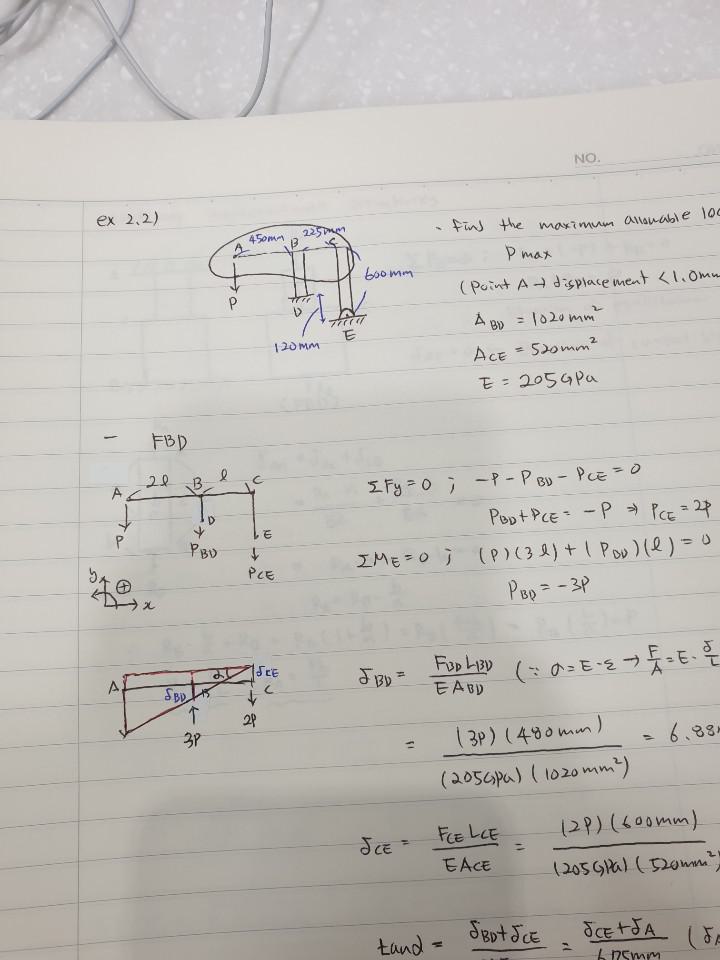 NO.
ex 2.2)
A 450mm B 225mm C
P
D
600mm
120mm
E
· Find the maximum allowable
P max
(Point A → displacement < 1.0mm
A BD = 1020mm²
A CE = 520mm²
E = 205GPa
- FBD
A 2l B l C
P
D
P BD
E
P CE
y
⊕
x
ΣFy = 0 ; -P - P BD - P CE = 0
P BD + P CE = -P ⇒ P CE = 2P
ΣM E = 0 ; (P)(3l) + (P BD)(l) = 0
P BD = -3P
A δBD B α δCE C
3P
2P
δBD = F BD L BD / E A BD (∵ σ = E·ε → F/A = E· δ/L
= (3P)(480mm) / (205GPa)(1020mm²) = 6.88
δCE = F CE L CE / E A CE = (2P)(600mm) / (205GPa)(520mm²)
tanα = δBD + δCE = δCE + δA / 675mm